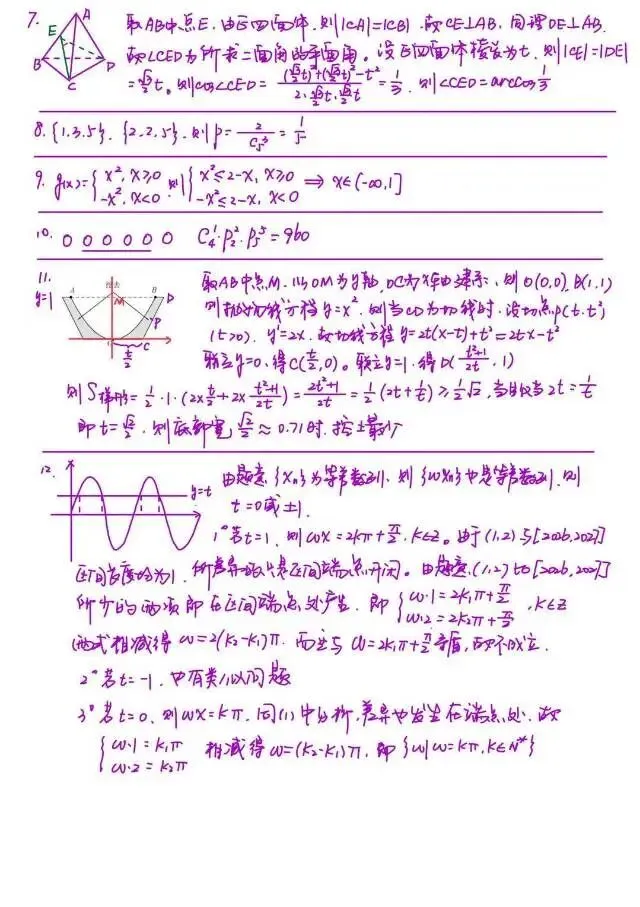 7. 取AB中点E,由正四面体,则|CA|=|CB|,故CE⊥AB,同理DE⊥AB.
A
E
B
D
C
故∠CED为所求二面角的平面角。设正四面体棱长为t,则|CE|=|DE|
=√3/2 t。则cos∠CED= ((√3/2 t)²+(√3/2 t)²-t²)/(2·√3/2 t·√3/2 t) = 1/3. 则∠CED=arccos 1/3
8. {1,3,5}、{2,2,5},则P= 2/C = 1/5
9. g(x)={x², x≥0; -x², x<0 则{x²≤2-x, x≥0; -x²≤2-x, x<0 ⇒ x∈(-∞,1]
10. 0 0 0 0 0 0 0 C₄¹·P₂²·P₅⁵=960
11. 取AB中点M,以OM为y轴,OC为x轴建系,则O(0,0),B(1,1)
y=1
A
M
B
D
P
C
t/2
则抛物线方程y=x²,则当CD为切线时,设切点P(t,t²)
(t>0), y'=2x,故切线方程y=2t(x-t)+t²=2tx-t²
联立y=0,得C(t/2,0)。联立y=1,得D((t²+1)/2t,1)
则S梯形=1/2·1·(2×t/2+2×(t²+1)/2t)=(2t²+1)/2t=1/2(2t+1/t)≥1/2·2√2,当且仅当2t=1/t
即t=√2/2,则底部宽√2/2≈0.71时,挖土最少
12. 由题意{xn}为等差数列,则{ωxn}也是等差数列,则
y=t
t=0或±1.
1°若t=1,则ωx=2kπ+π/2,k∈Z。由于(1,2)与[2026,2027]
区间长度均为1,所差异的只是区间端点开闭。由题意,(1,2)比[2026,2027]
所少的两项即在区间端点处产生,即{ω·1=2k₁π+π/2; ω·2=2k₂π+π/2, k∈Z
两式相减得ω=2(k₂-k₁)π,而这与ω=2k₁π+π/2矛盾,故不成立.
2°若t=-1,也有类似问题
3°若t=0,则ωx=kπ,同(1)中分析,差异也发生在端点处,故
{ω·1=k₁π; ω·2=k₂π 相减得ω=(k₂-k₁)π,即{ω|ω=kπ,k∈N*}